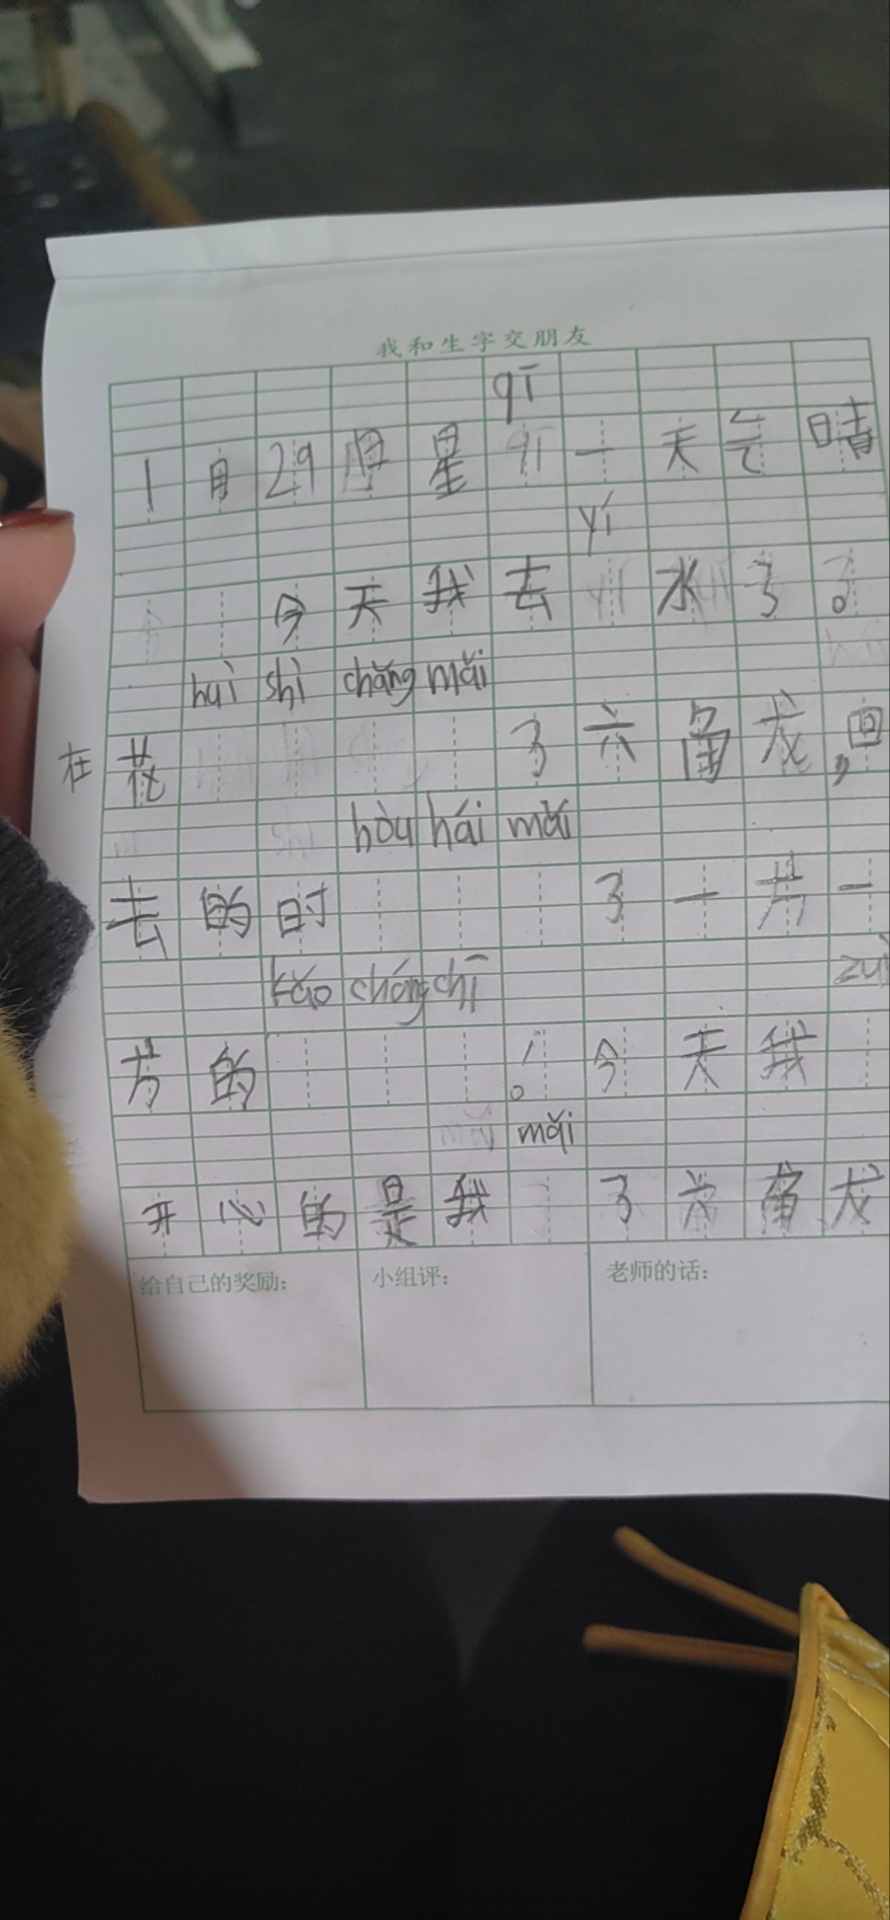 我和生字交朋友
qī
1月29日星 一天气晴
yí
今天我去 水了。
huì shì chǎng mǎi
在花 了六角龙,回
hòu hái mǎi
去的时 了一片一
kǎo chóng chī
片的 。今天我
zuì
mǎi
开心的是我 了六角龙
给自己的奖励:
小组评:
老师的话: